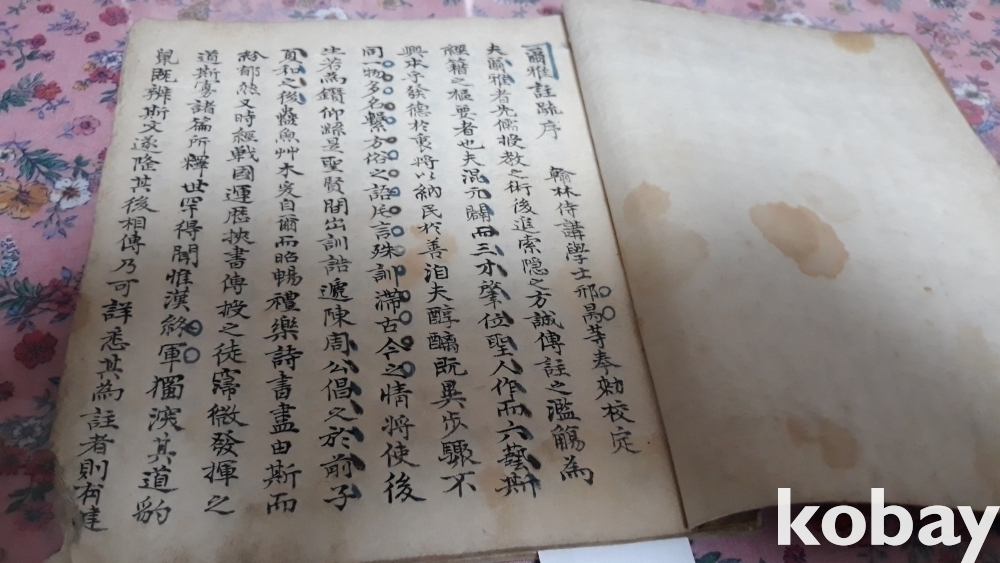 爾雅註疏序
翰林侍講學士邢昺等奉勅校定
夫爾雅者先儒授教之術後進索隐之方誠傳註之濫觴為
經籍之樞要者也夫混元闢而三才肇位聖人作而六藝斯
興本乎發德於衷將以納民於善洎夫醇醨既異步驟不
同一物多名繫方俗之語片言殊訓滯古今之情將使後
生若為鑽仰繇是聖賢間出訓誥遞陳周公倡之於前子
夏和之後蟲魚艸木爰自爾而昭暢禮樂詩書盡由斯而
紛郁然又時經戰國運歷挾書傳授之徒寖微發揮之
道斯寡諸篇所釋世罕得聞惟漢終軍獨深其道豹
鼠既辨斯文遂隆其後相傳乃可詳悉其為註者則有犍
kobay